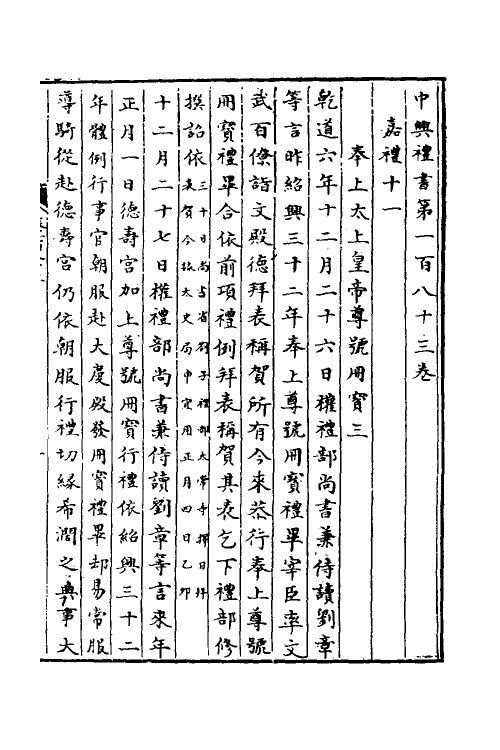 中興禮書第一百八十三卷
嘉禮十一
奉上太上皇帝尊號冊寶三
乾道六年十二月二十六日權禮部尚書兼侍讀劉章
等言昨紹興三十二年奉上尊號冊寳禮畢宰臣率文
武百僚詣文殿德拜表稱賀所有今來恭行奉上尊號
冊寳禮畢合依前項禮例拜表稱賀其表乞下禮部修
撰詔依三十日尚書省劄子禮部太常寺擇日拜
表賀今據太史局申宜用正月四日乙卯
十二月二十七日權禮部尚書兼侍讀劉章等言來年
正月一日德壽宮加上尊號冊寳行禮依紹興三十二
年體例行事官朝服赴大慶殿發冊寳禮畢却易常服
導騎從赴德壽宮仍依朝服行禮切緣希濶之典事大